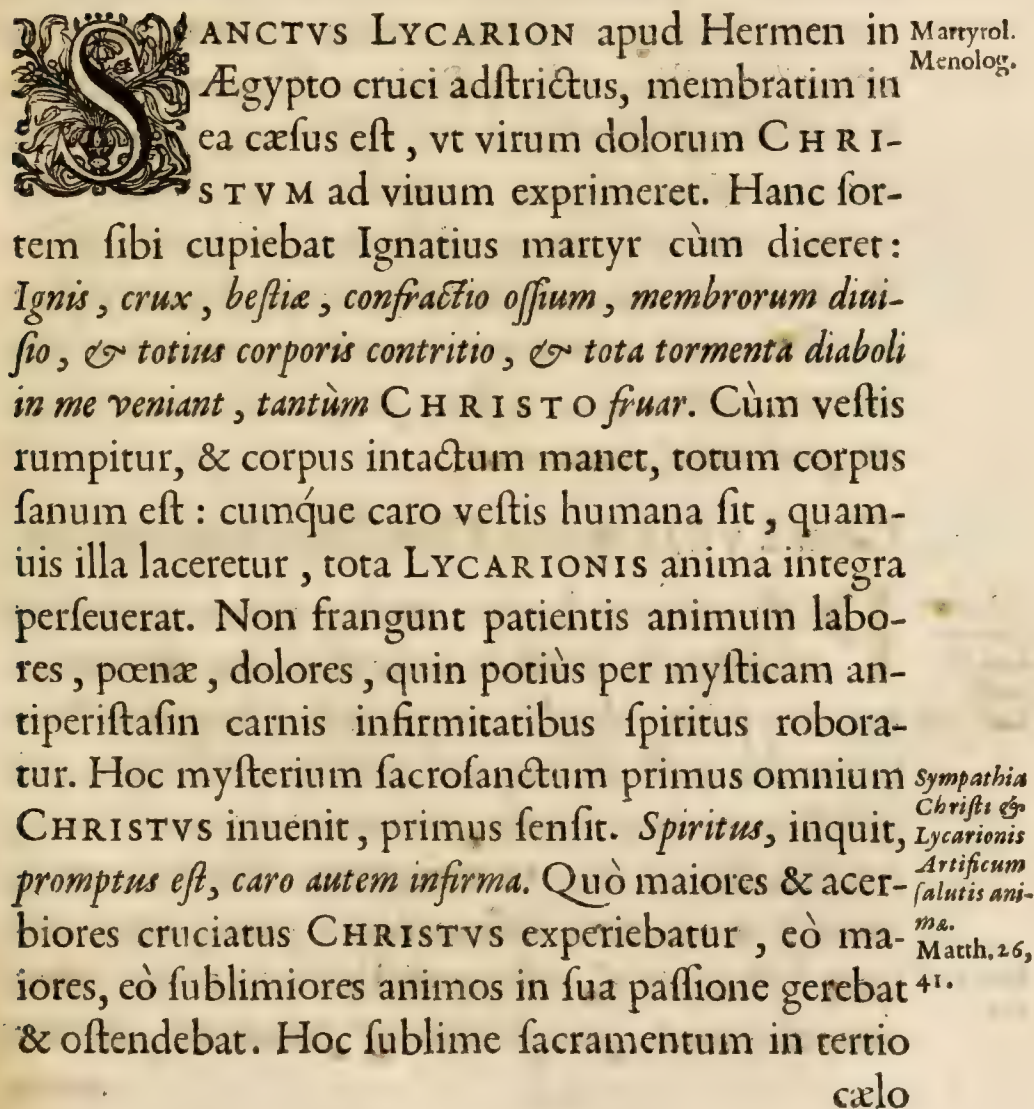 SANCTVS LYCARION apud Hermen in
Ægypto cruci adſtrictus, membratim in
ea cæſus eſt, vt virum dolorum CHRI-
STVM ad viuum exprimeret. Hanc ſor-
tem ſibi cupiebat Ignatius martyr cùm diceret:
Ignis, crux, beſtiæ, confractio oſſium, membrorum diui-
ſio, & totius corporis contritio, & tota tormenta diaboli
in me veniant, tantùm CHRISTO fruar. Cùm veſtis
rumpitur, & corpus intactum manet, totum corpus
ſanum eſt: cumq́ue caro veſtis humana ſit, quam-
uis illa laceretur, tota LYCARIONIS anima integra
perſeuerat. Non frangunt patientis animum labo-
res, pœnæ, dolores, quin potiùs per myſticam an-
tiperiſtaſin carnis infirmitatibus ſpiritus robora-
tur. Hoc myſterium ſacroſanctum primus omnium
CHRISTVS inuenit, primus ſenſit. Spiritus, inquit,
promptus eſt, caro autem infirma. Quò maiores & acer-
biores cruciatus CHRISTVS experiebatur, eò ma-
iores, eò ſublimiores animos in ſua paſſione gerebat
& oſtendebat. Hoc ſublime ſacramentum in tertio
cælo
Martyrol.
Menolog.
Sympathia
Chriſti &
Lycarionis
Artificum
ſalutis ani-
mæ.
Matth. 26,
41.